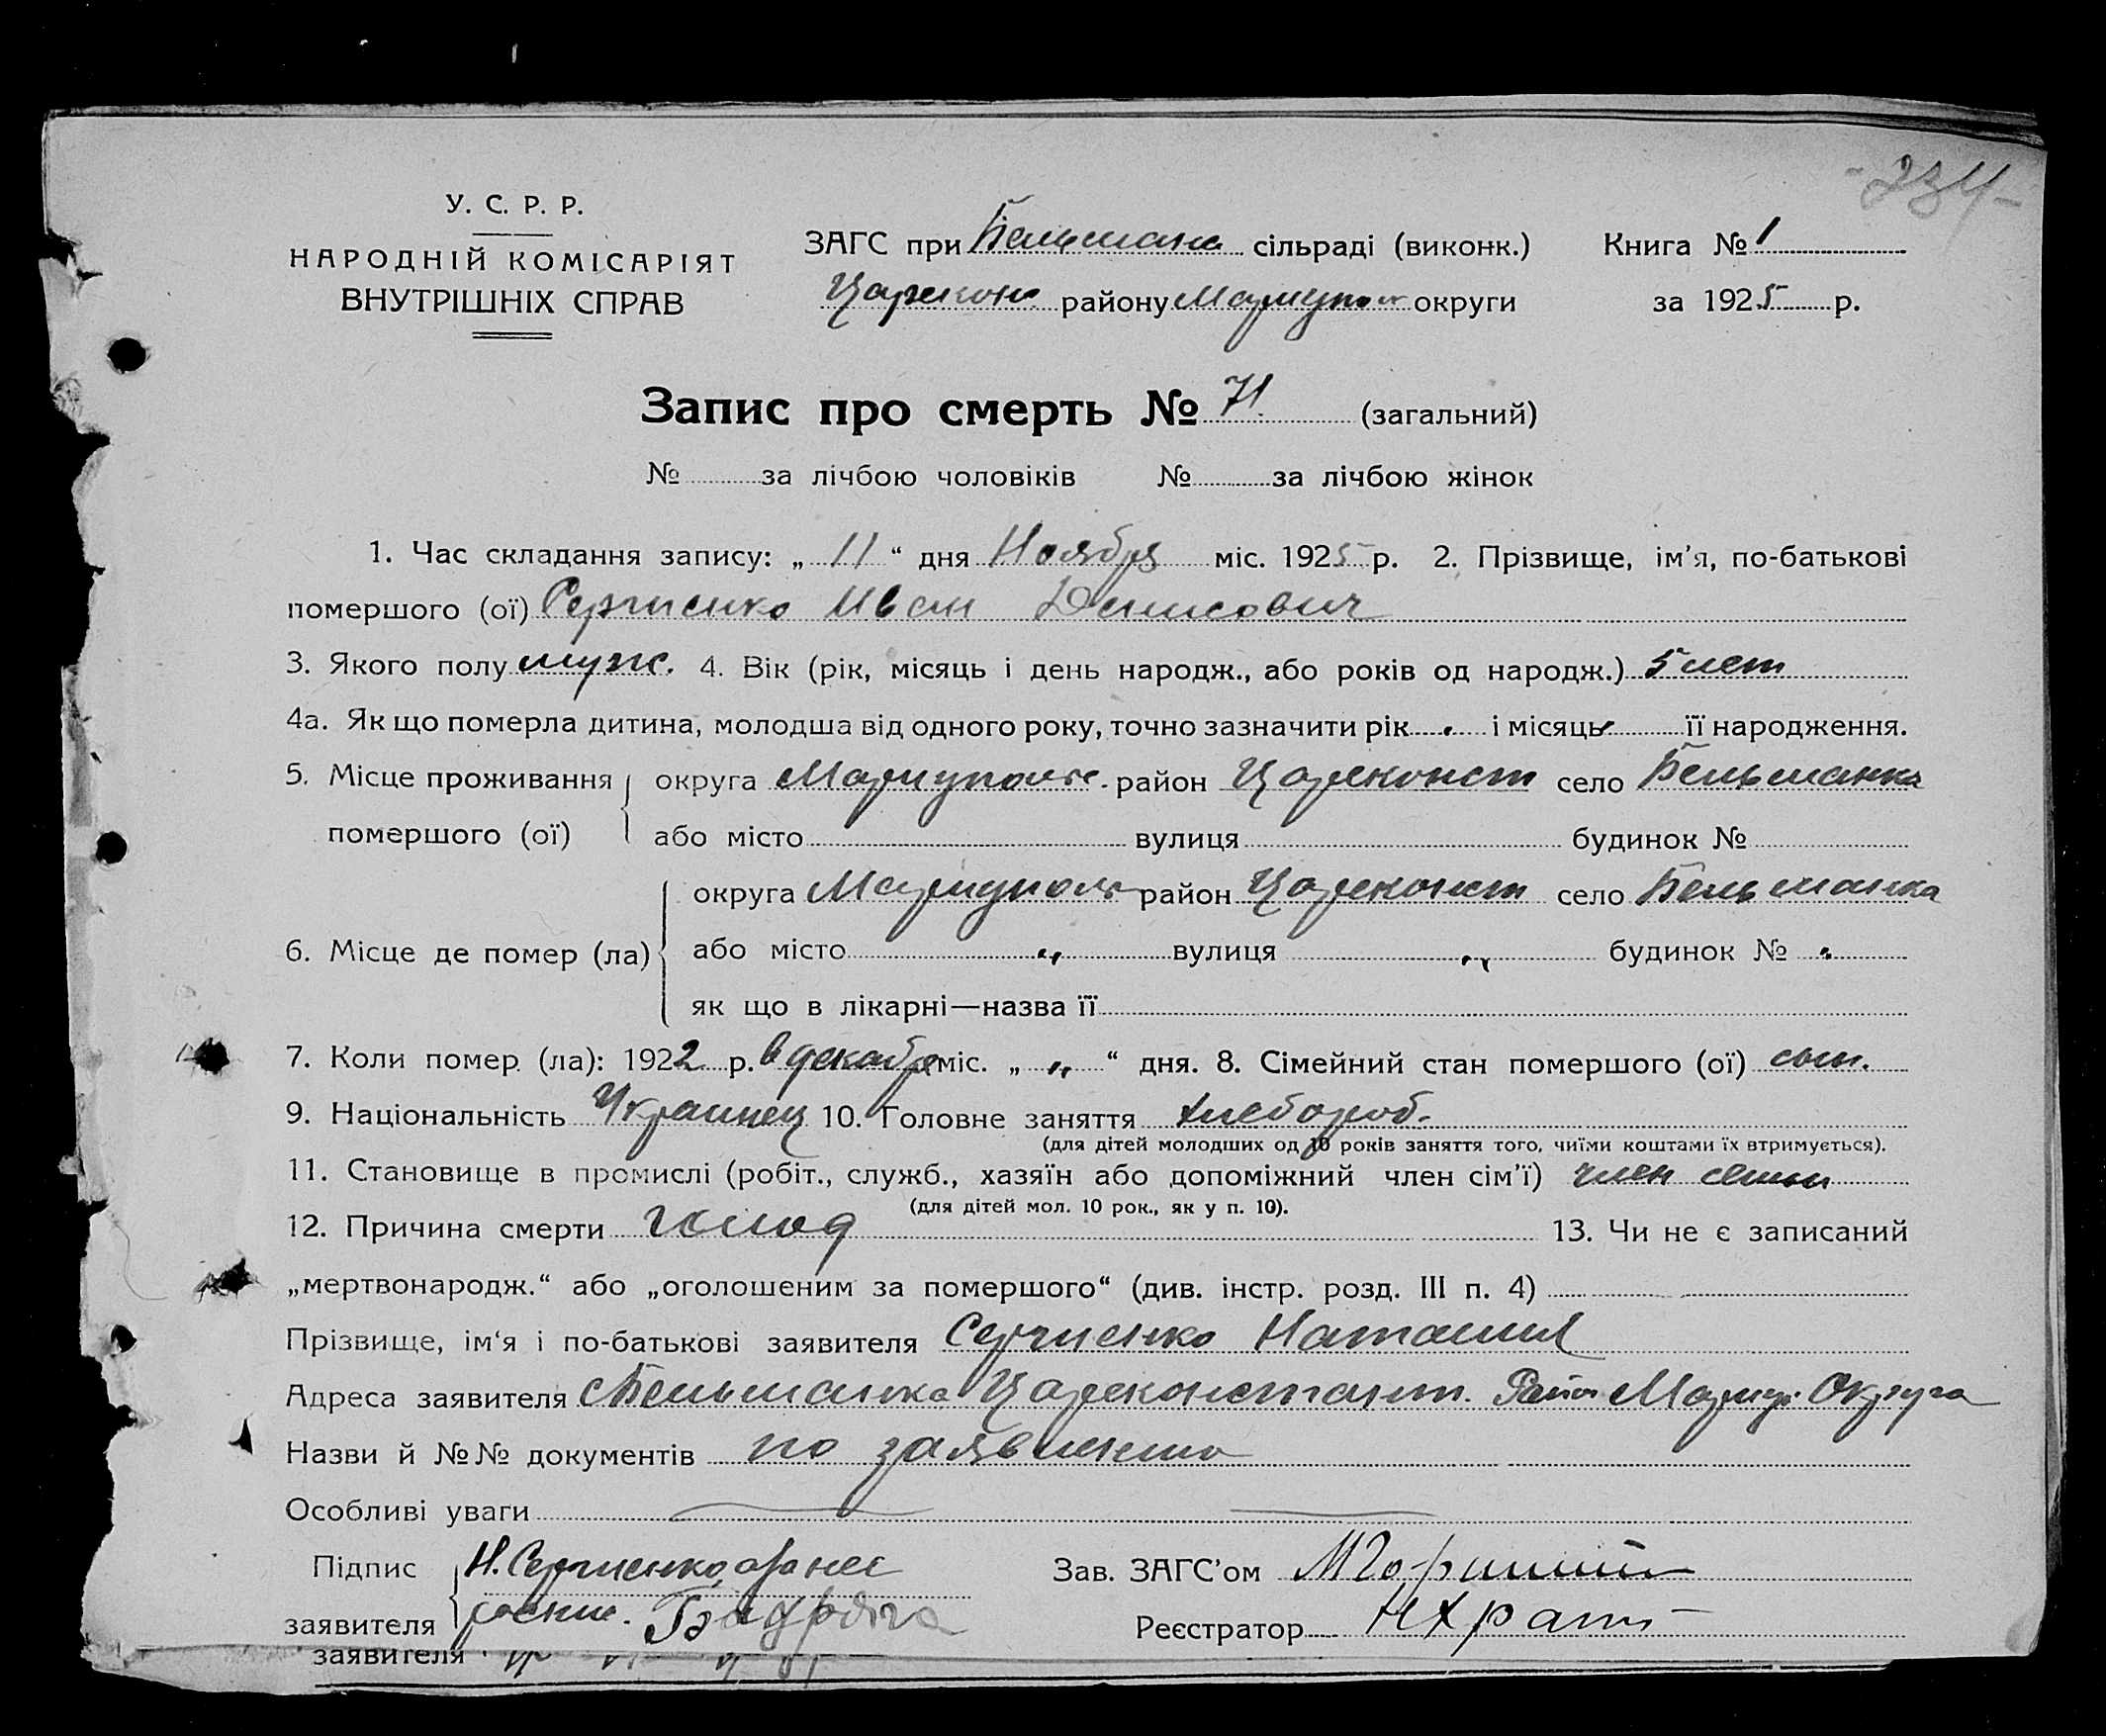 -234-
У. С. Р. Р.
НАРОДНІЙ КОМІСАРІЯТ
ВНУТРІШНІХ СПРАВ
ЗАГС при Бельманк сільраді (виконк.) Книга № 1
Царекон. району Мариупол округи за 1925 р.
Запис про смерть № 71 (загальний)
№ за лічбою чоловіків № за лічбою жінок
1. Час складання запису: „ 11 “ дня Ноября міс. 1925 р. 2. Прізвище, ім’я, по-батькові
помершого (ої) Сергиенко Иван Денисович
3. Якого полу муж. 4. Вік (рік, місяць і день народж., або років од народж.) 5 лет
4а. Як що померла дитина, молодша від одного року, точно зазначити рік і місяць її народження.
5. Місце проживання округа Мариупольс. район Цареконст село Бельманка
помершого (ої) або місто вулиця будинок №
округа Мариуполь район Цареконст село Бельманка
6. Місце де помер (ла) або місто „ вулиця „ будинок № „
як що в лікарні—назва її
7. Коли помер (ла): 1922 р. в декабре міс. „ „ “ дня. 8. Сімейний стан помершого (ої) сын.
9. Національність Украинец 10. Головне заняття хлебороб.
(для дітей молодших од 10 років заняття того, чиїми коштами їх втримується).
11. Становище в промислі (робіт., служб., хазяїн або допоміжний член сім’ї) член семьи
(для дітей мол. 10 рок., як у п. 10).
12. Причина смерти голод 13. Чи не є записаний
„мертвонародж.“ або „оголошеним за помершого“ (див. інстр. розд. III п. 4)
Прізвище, ім‘я і по-батькові заявителя Сергиенко Наталия
Адреса заявителя с Бельманка Цареконстант. Район Мариуп. Округа
Назви й №№ документів по заявлению
Особливі уваги
Підпис Н. Сергиенко а за нее Зав. ЗАГС’ом
заявителя роспис. Реєстратор
заявителя